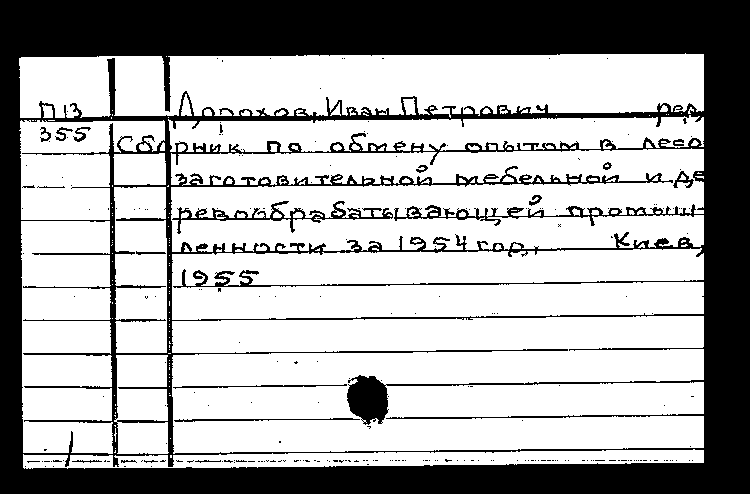 П13 Дорохов, Иван Петрович ред,
355 Сборник по обмену опытом в лесо
заготовительной мебельной и де
ревообрабатывающей промыш-
ленности за 1954 год, Киев,
1955